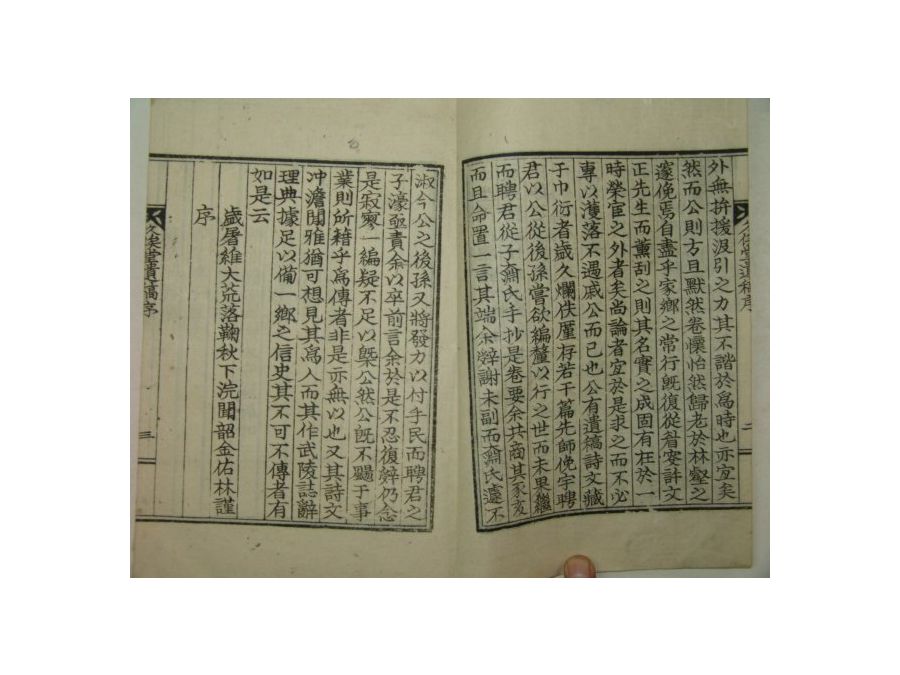 外無拚援汲引之力其不諧於爲時也亦宜矣
然而公則方且默然卷懷怡然歸老於林壑之
邃俛焉自盡乎家鄉之常行旣復從眉叟許文
正先生而薰刮之則其名實之成固有在於一
時榮宦之外者矣尚論者宜於是求之而不必
專以濩落不遇戚公而已也公有遺稿詩文藏
于巾衍者歲久爛佚厪存若干篇先師俛宇聘
君以公從後孫嘗欲編釐以行之世而未果繼
而聘君從子奫氏手抄是卷要余共商其豕亥
而且命置一言其端余辤謝未副而奫氏遽不
淑今公之後孫又將發力以付手民而聘君之
子濠亟責余以卒前言余於是不忍復辤仍念
是寂寥一編疑不足以槩公然公旣不颺于事
業則所藉乎爲傳者非是亦無以也又其詩文
冲澹閒雅猶可想見其爲人而其作武陵誌辭
理典據足以備一鄉之信史其不可不傳者有
如是云
歲屠維大荒落鞠秋下浣聞韶金佑林謹
序
遺稿序
三